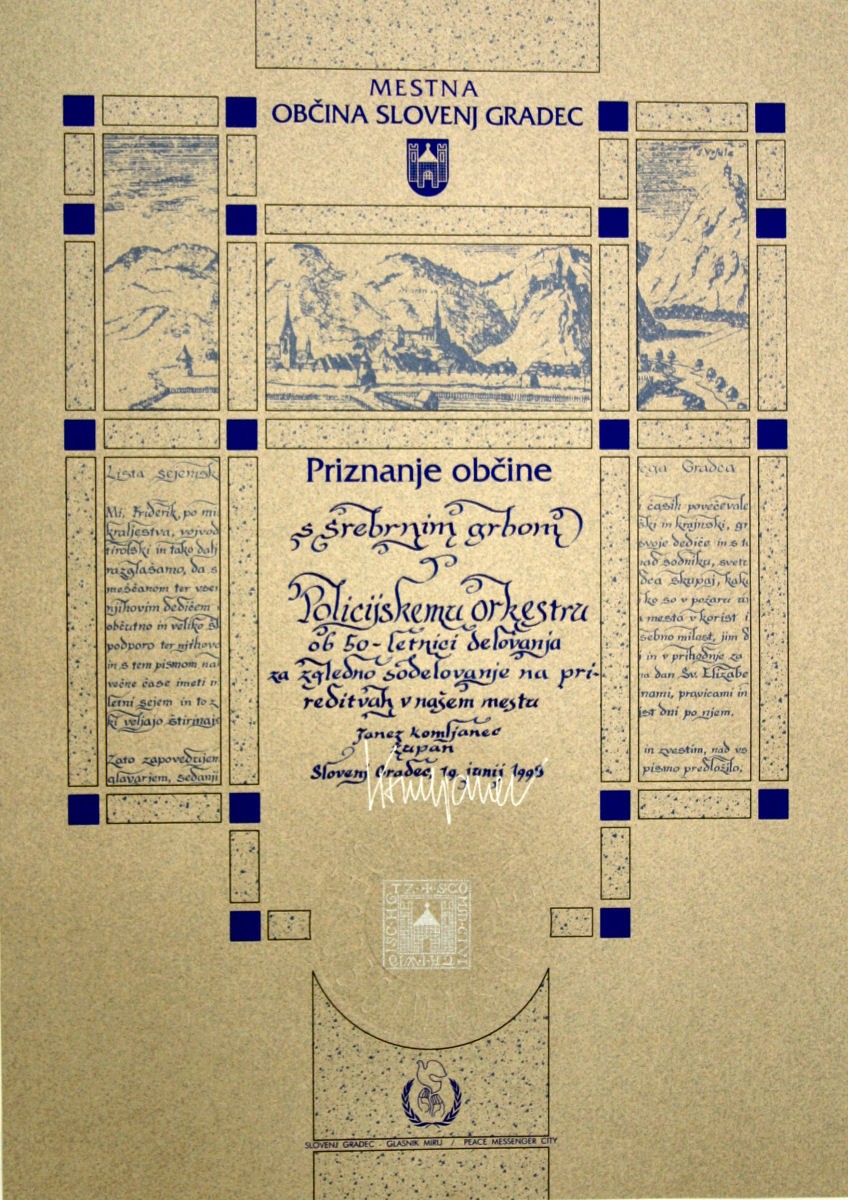 MESTNA
OBČINA SLOVENJ GRADEC
S. Vrsula
Priznanje občine
s srebrnim grbom
Policijskemu orkestru
ob 50-letnici delovanja
za zgledno sodelovanje na pri-
reditvah v našem mestu
Janez Komljanec
župan
Slovenj Gradec, 19. junij 1998
Lista sejemsk
Mi, Friderik, po mi
kraljestva, vojvod
tirolski in tako dalj
razglašamo, da s
meščanom ter vsem
njihovim dedičem
občutno in veliko
podporo ter njihovo
in s tem pismom na
večne čase imeti
letni sejem in to z
ki veljajo štirinajs
Zato zapovedujem
glavarjem, sedanji
ega Gradca
i časih povečevale
ski in krajnski, gr
svoje dediče in s t
nad sodniku, svetu
dca skupaj, kako
ko so v požaru
a mesta v korist i
sebno milost, jim d
i in v prihodnje za
na dan Sv. Elizabe
nami, pravicami in
ist dni po njem.
in zvestim, nad vs
pismo predložilo.
SLOVENJ GRADEC - GLASNIK MIRU / PEACE MESSENGER CITY